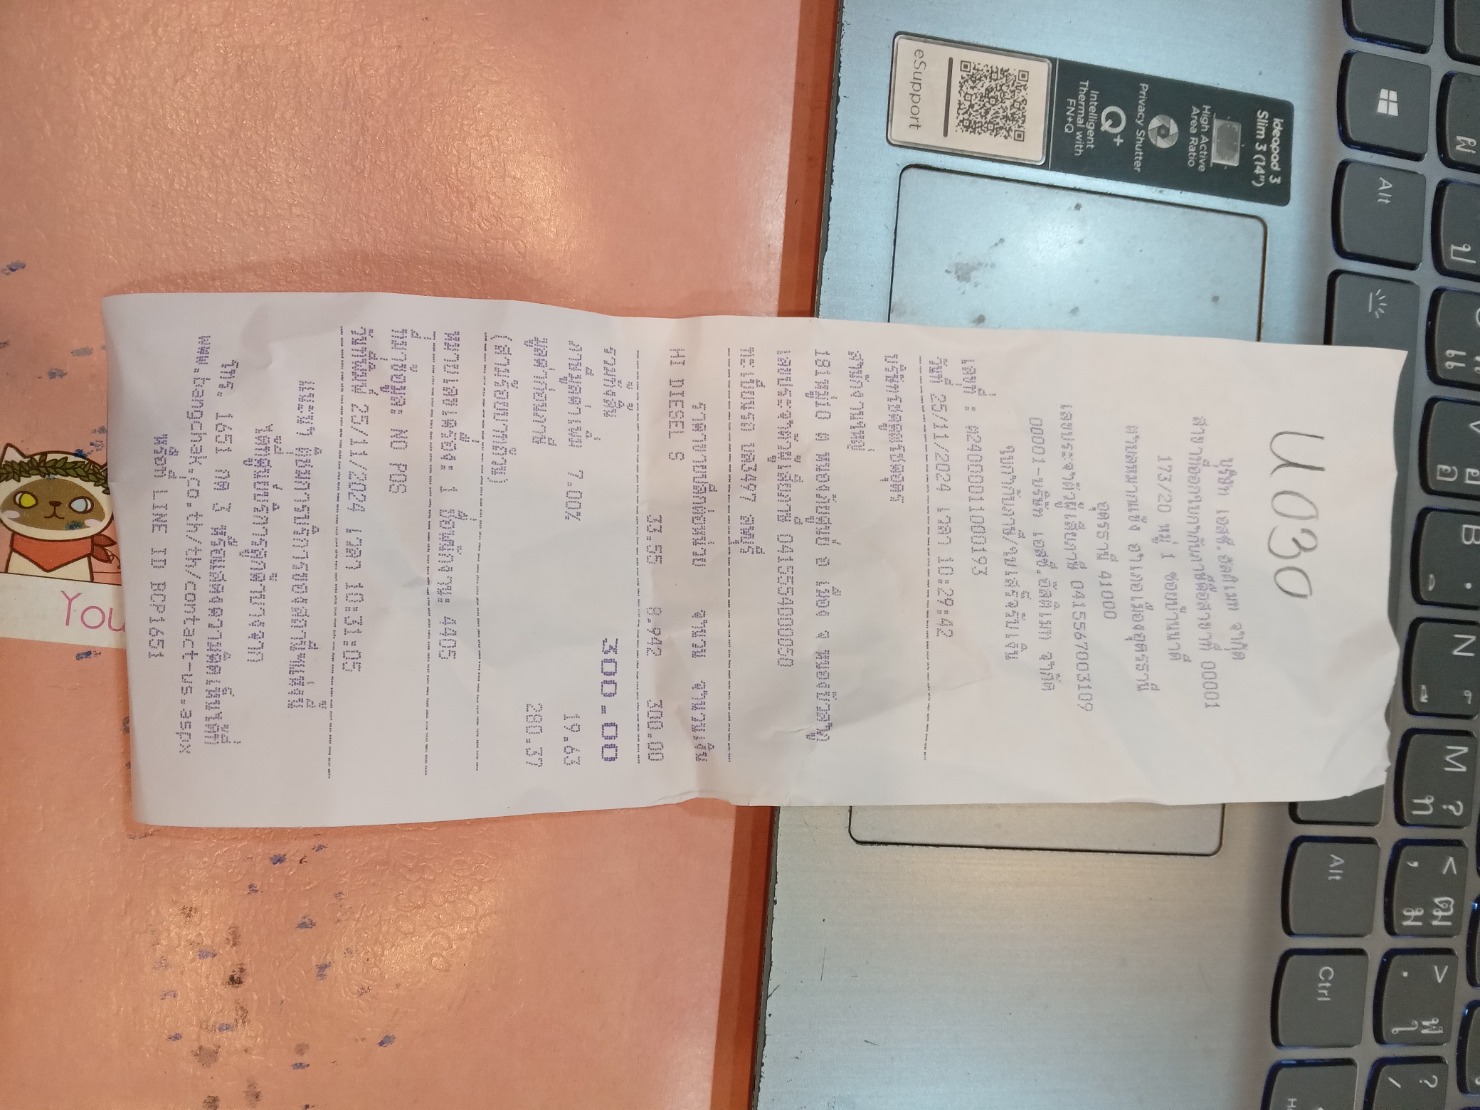 U030
บริษัท เอสซี.อัลติเมท จำกัด
สาขาที่ออกใบกำกับภาษีคือสาขาที่ 00001
173/20 หมู่ 1 ซอยบ้านนาดี
ตำบลหมากแข้ง อำเภอเมืองอุดรธานี
อุดรธานี 41000
เลขประจำตัวผู้เสียภาษี 0415567003109
00001-บริษัท เอสซี.อัลติเมท จำกัด
ใบกำกับภาษี/ใบเสร็จรับเงิน
วันที่ 25/11/2024 เวลา 10:29:42
เลขที่ : 
สำนักงานใหญ่
181หมู่10 ต หนองภัยศูนย์ อ เมือง จ หนองบัวลำภู
เลขประจำตัวผู้เสียภาษี
ทะเบียนรถ
ราคาขายปลีกต่อหน่วย จำนวน จำนวนเงิน
HI DIESEL S
33.55 8.942 300.00
รวมทั้งสิ้น 300.00
ภาษีมูลค่าเพิ่ม 7.00% 19.63
มูลค่าก่อนภาษี 280.37
(สามร้อยบาทถ้วน)
หมายเลขเครื่อง: 1 ชื่อพนักงาน: 4405
ที่มาข้อมูล: NO POS
วันที่พิมพ์ 25/11/2024 เวลา 10:31:05
แนะนำ ติชมการบริการของสถานีฯแห่งนี้
ได้ที่ศูนย์บริการลูกค้าบางจาก
โทร. 1651 กด 3 หรือแสดงความคิดเห็นได้ที่
www.bangchak.co.th/th/contact-us.aspx
หรือที่ LINE ID BCP1651
You
Ideapad 3
Slim 3 (14")
High Active
Area Ratio
Privacy Shutter
Q+
Intelligent
Thermal with
FN+Q
eSupport
Alt
V
B
N
M
Alt
Ctrl